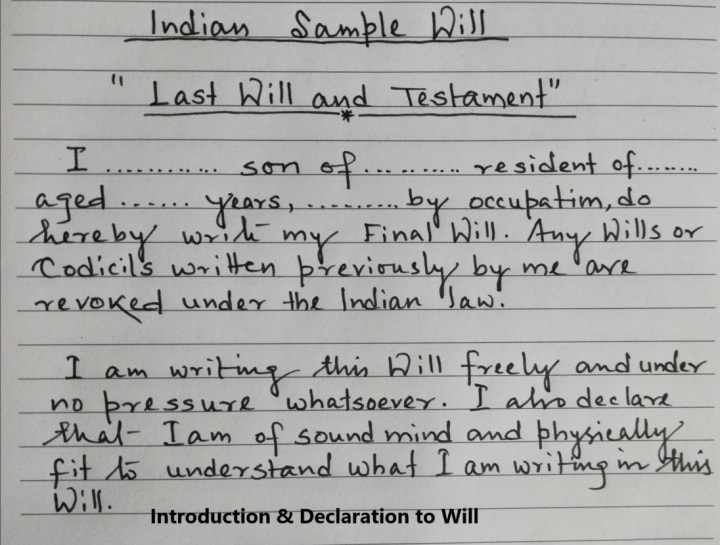 Indian Sample Will
"Last Will and Testament"
*
I ............ son of ........... resident of........
aged ...... years, ......... by occupatim, do
hereby write my Final Will. Any Wills or
Codicils written previously by me are
revoked under the Indian law.
I am writing this Will freely and under
no pressure whatsoever. I also declare
that I am of sound mind and physically
fit to understand what I am writing in this
Will.
Introduction & Declaration to Will